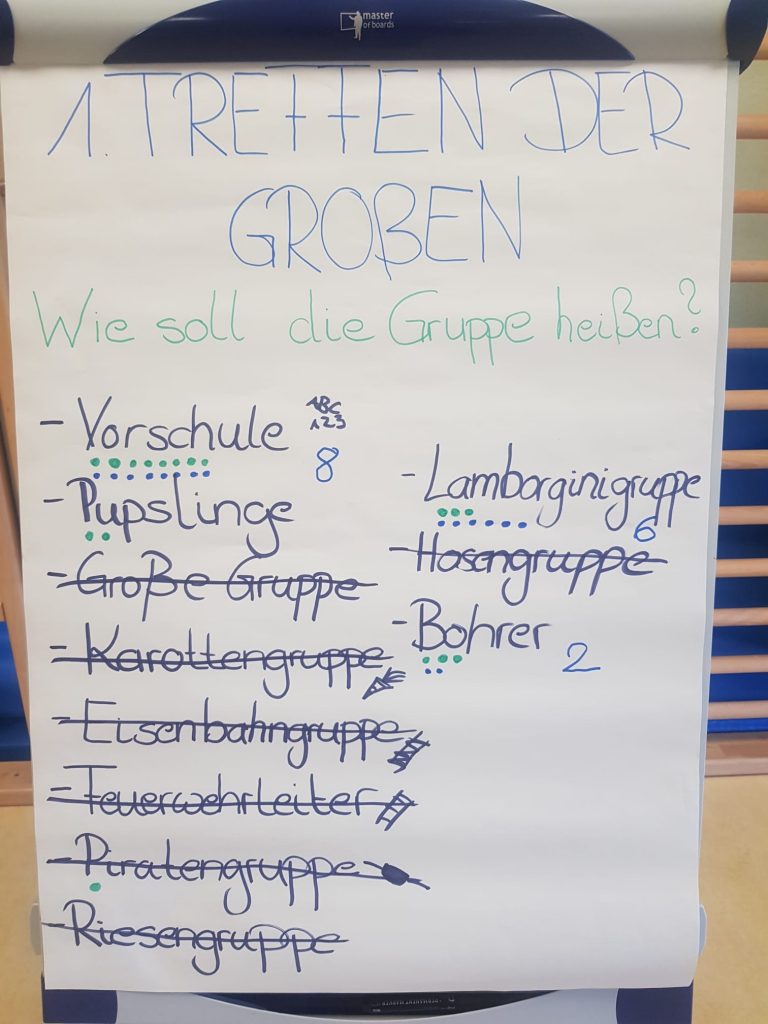 master
of boards
1. TREFFEN DER
GROßEN
Wie soll die Gruppe heißen?
- Vorschule
ABC
123
8
- Pupslinge
- Große Gruppe
- Karottengruppe
- Eisenbahngruppe
- Feuerwehrleiter
- Piratengruppe
- Riesengruppe
- Lamborginigruppe
6
- Hosengruppe
- Bohrer
2